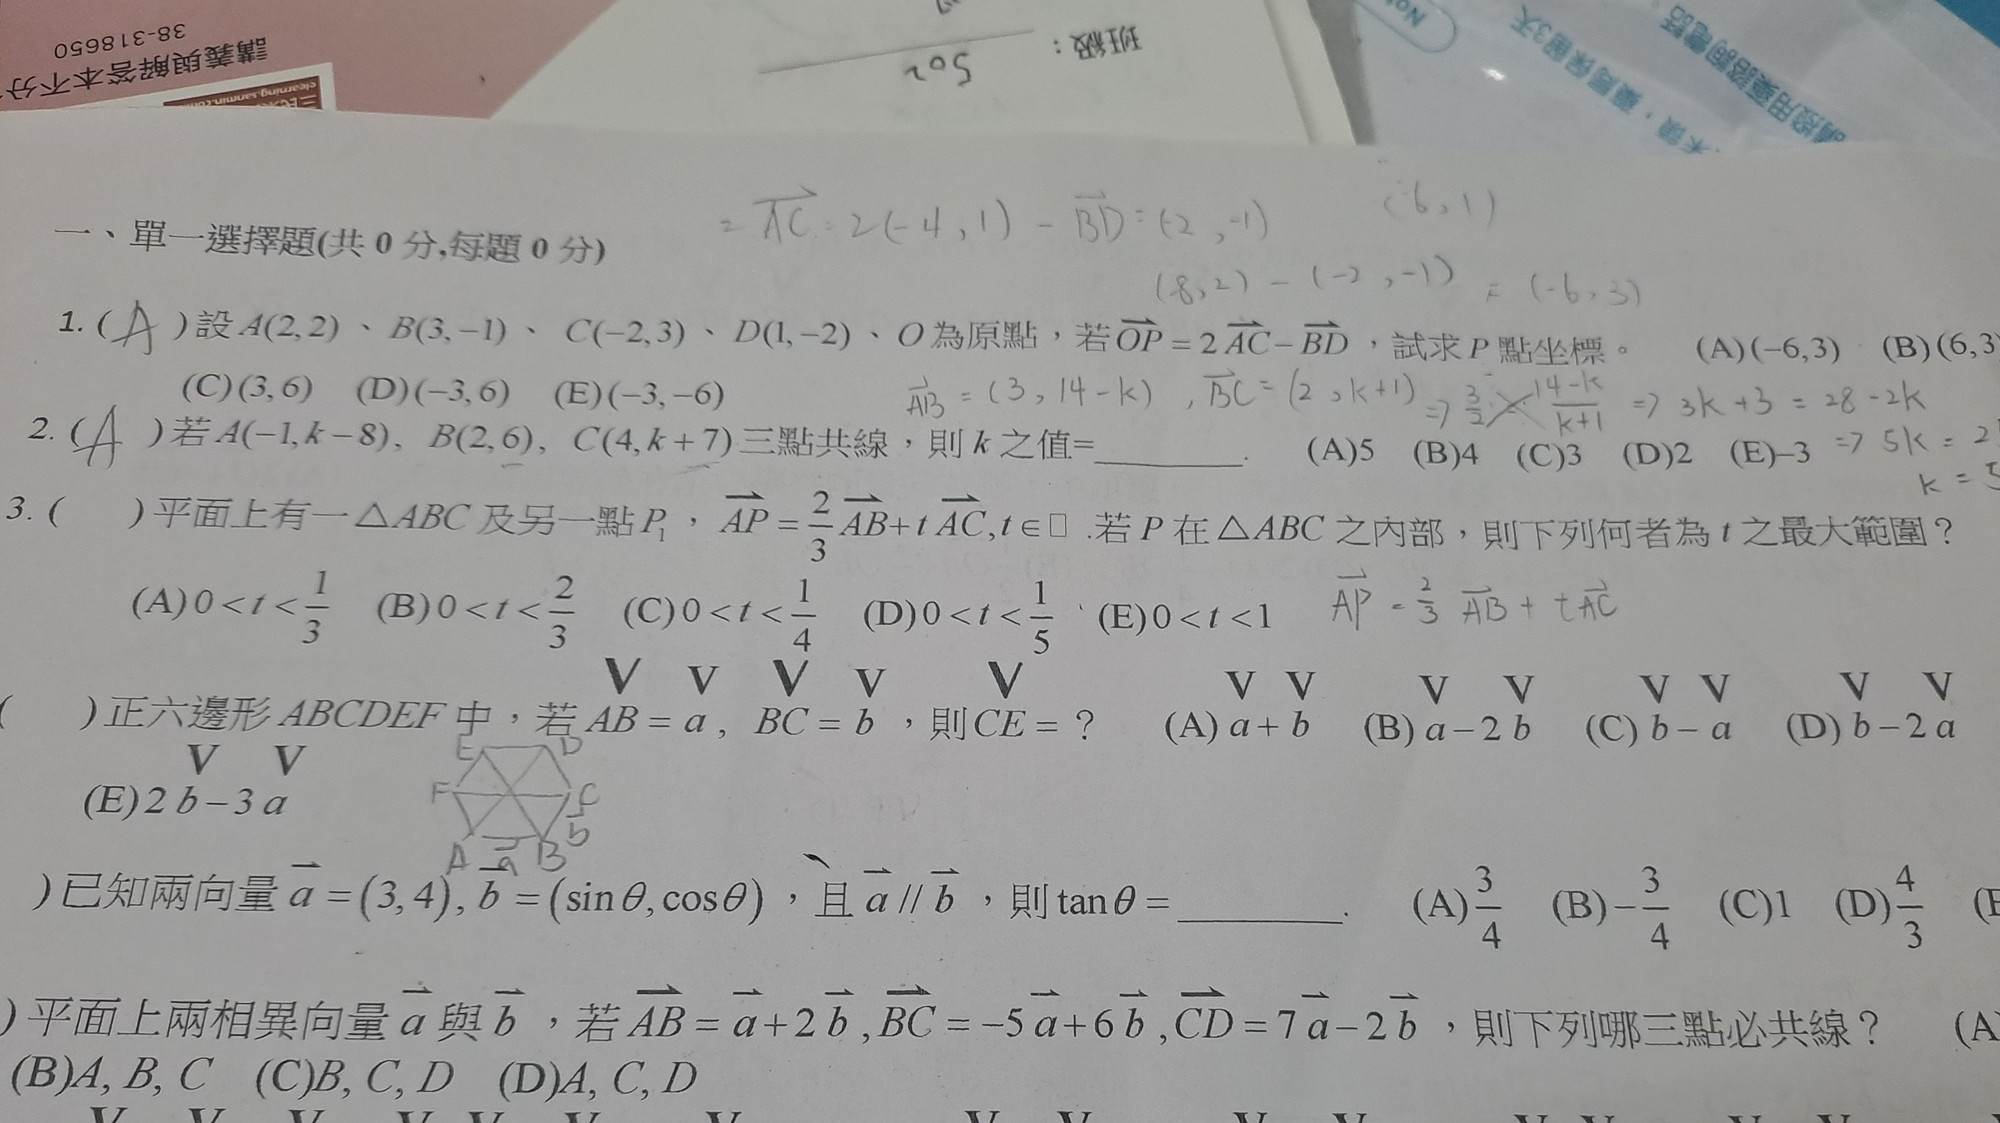 38-318650
講義與解答本不分
elearning.sanmin.com
班級：
502
= AC = 2(-4,1) - BD = (-2,-1)
(-6,1)
(8,2) - (-2,-1) = (-6,3)
一、單一選擇題(共 0 分,每題 0 分)
1. ( A )設 A(2,2)、B(3,−1)、C(−2,3)、D(1,−2)、O 為原點，若 OP = 2 AC − BD ，試求 P 點坐標。 (A)(−6,3) (B)(6,3
(C)(3,6) (D)(−3,6) (E)(−3,−6)
AB = (3, 14-k), BC = (2, k+1) => 3/2 14-k/k+1 => 3k+3 = 28-2k
2. ( A )若 A(−1,k−8), B(2,6), C(4,k+7)三點共線，則 k 之值=________. (A)5 (B)4 (C)3 (D)2 (E)–3
=> 5k = 2
k = 5
3. ( )平面上有一△ABC 及另一點 P₁，AP = 2/3 AB + t AC, t∈□ .若 P 在△ABC 之內部，則下列何者為 t 之最大範圍？
(A) 0 < t < 1/3 (B) 0 < t < 2/3 (C) 0 < t < 1/4 (D) 0 < t < 1/5 (E) 0 < t < 1
AP = 2/3 AB + t AC
V V V V V V V V V V V V V
( )正六邊形 ABCDEF 中，若 AB = a , BC = b ，則 CE = ？ (A) a + b (B) a − 2 b (C) b − a (D) b − 2 a
V V
(E) 2 b − 3 a
E D
F C
b
A a B
)已知兩向量 a = (3,4), b = (sinθ,cosθ)，且 a // b ，則 tanθ = ________. (A) 3/4 (B) − 3/4 (C)1 (D) 4/3 (E
)平面上兩相異向量 a 與 b ，若 AB = a + 2 b , BC = −5 a + 6 b , CD = 7 a − 2 b ，則下列哪三點必共線？ (A
(B)A, B, C (C)B, C, D (D)A, C, D